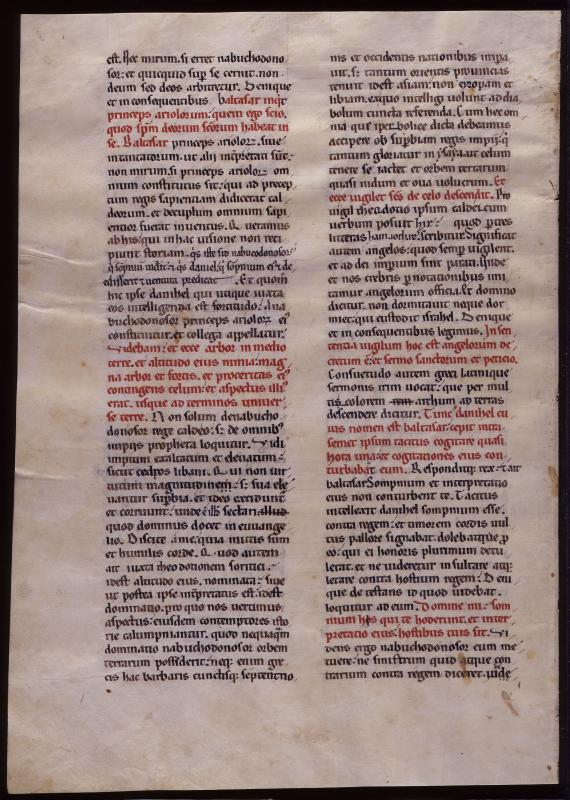 est. Nec mirum. si erret nabuchodono
sor: et quicquid sup se cernit. non
deum sed deos arbitretur. Denique
et in consequentibus. baltasar inqt
princeps ariolorum. quem ego scio.
quod spm deorum scorum habeat in
se. Baltasar princeps arioloꝝ. siue
incantatorum. ut alii intp̄retati sūt.
non mirum. si princeps arioloꝝ om
nium constitutus sit. qui ad precep
tum regis sapientiam didicerat cal
deorum. et decuplum omnium sapi
entior fuerat inuentus. Queramus
ab his. qui in hac uisione non reci
piunt storiam.
Et quom̄
hic ipse danihel qui utique iuxta
eos intelligenda est fortitudo. a na
buchodonosor princeps arioloꝝ ei
constituitur. et collega appellatur.
Videbam. et ecce arbor in medio
terre. et altitudo eius nimia. mag
na arbor et fortis. et proceritas ei
contingens celum. et aspectus illi
erat. usque ad terminos uniuer
se terre. Non solum de nabucho
donosor rege caldeo. s: de omnib
impiis propheta loquitur. Vidi
impium exaltatum et eleuatum:
sicut cedros libani. Qui non uir
tutum magnitudinem. s: sua ele
uantur supbia. et ideo excidunt
et corruunt. unde sectari illud
quod dominus docet in euuange
lio. Discite a me. quia mitis sum
et humilis corde. Quod autem
ait iuxta theodotionem
idest altitudo eius. nominata: siue
ut postea ipse intp̄retatus est. idest
dominatio. pro quo nos uertimus
aspectus: eiusdem contemptores isto
rie calumpniantur. quod nequaqm
dominatio nabuchodonosor orbem
terrarum possederit. neq: enim gre
cis hac barbaris cunctisq: septentrio
nis et occidentis nationibus impa
uit. s: tantum orientis prouincias
tenuit idest asiam: non europam et
libiam. ex quo intelligi uolunt ad dia
bolum cuncta referenda. Cum hec om
nia que iperbolice dicta debeamus
accipere ob supbiam regis impii. q
tantum gloriatur in ysaya. ut celum
tenere se iactet et orbem terrarum.
quasi nidum et oua uolucrum. Et
ecce uigilet scs de celo descendit. Pro
uigil theodotio ipsum caldeicum
uerbum posuit hir. quod p tres
litteras scribitur. significat
autem angelos. quod semp uigilent.
et ad dei imperium sint parati. unde
et nos crebris pnoctationibus imi
tamur angelorum officia. Et domino
dicitur. non dormitauit neque dor
miet. qui custodit israhel. Denique
et in consequentibus legimus. In sen
tentia uigilum hoc est angelorum de
cretum ē. et sermo sanctorum et peticio.
Consuetudo autem greci latinique
sermonis irim uocat. que per mul
ticolorem arcum ad terras
descendere dicitur. Tunc danihel cu
ius nomen est baltasar. cepit intra
semet ipsum tacitus cogitare quasi
hora una. et cogitationes eius con
turbabat eum. Respondit q: rex. et ait
baltasar. Sompnium et interpretatio
eius non conturbent te. Tacitus
intellexit danihel sompnium esse
contra regem. et timorem cordis uul
tus pallore signabat. dolebatque p
eo. qui ei honoris plurimum detu
lerat. et ne uideretur insultare atq:
letare contra hostium regem. Deni
que detestans id quod uidebat.
loquitur ad eum. Domine mi. som
nium his qui te hoderunt. et inter
pretacio eius. hostibus tuis sit. Vi
dens ergo nabuchodonosor eum me
tuere. ne sinistrum quid atque con
trarium contra regem diceret. uide